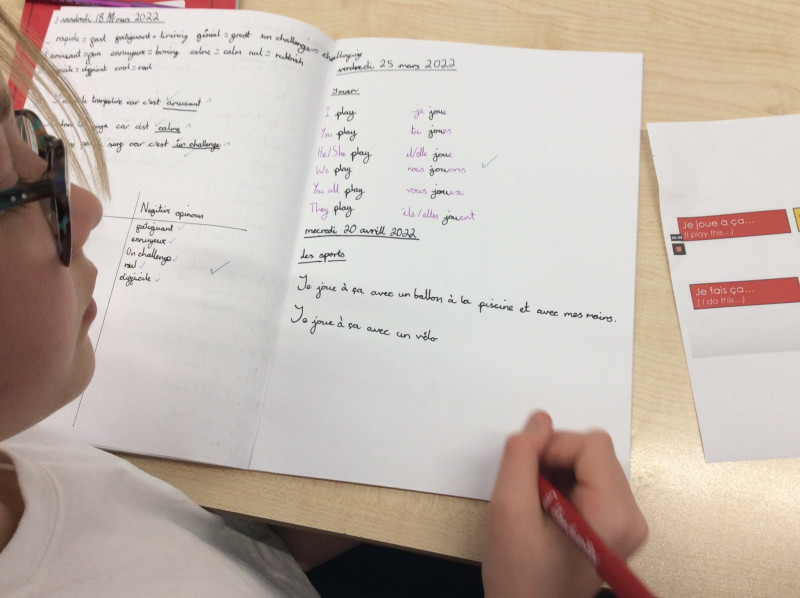 vendredi 18 mars 2022
rapide = fast fatiguant = tireing génial = great un challenge = challenging
amusant = fun ennuyeux = boring calme = calm nul = rubbish
difficile = difficult cool = cool
trampoline car c'est amusant
car c'est calme
car c'est un challenge
Negitive opinions
fatiguant
ennuyeux
Un challenge
nul
difficile
vendredi 25 mars 2022
Jouer
I play je joue
You play tu joues
He/She play il/elle joue
We play nous jouons
You all play vous jouez
They play ils/elles jouent
mecredi 20 avrill 2022
les sports
Je joue à ça avec un ballon à la piscine et avec mes mains.
Je joue à ça avec un vélo
Je joue à ça...
(I play this...)
Je fais ça...
(I do this...)